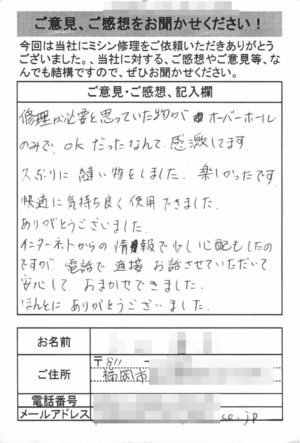 ご意見、ご感想をお聞かせください！
今回は当社にミシン修理をご依頼いただきありがとう
ございました。、当社に対する、ご感想やご意見等、な
んでも結構ですので、ぜひお聞かせください。
ご意見・ご感想、記入欄
修理が必要と思っていた物が オーバーホール
のみで、OKだったなんて 感激してます.
久ぶりに 縫い物をしました. 楽しかったです
快適に気持ち良く使用できました.
ありがとうございました.
インターネットからの情報で少し心配もしたの
ですが 電話で直接お話させていただいて
安心して おまかせできました.
ほんとに ありがとうございました.
お名前
ご住所
〒811 -
福岡市
電話番号
メールアドレス
.jp